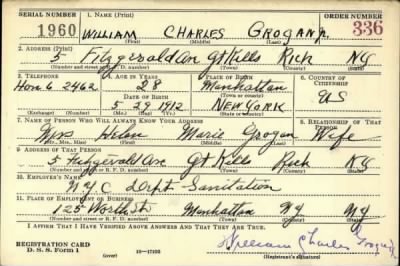 SERIAL NUMBER 1. NAME (Print) ORDER NUMBER
1960 WILLIAM CHARLES GROGAN Jr. 336
(First) (Middle) (Last)
2. ADDRESS (Print)
5 Fitzgerald Gt Kills Rich NY
(Number and street or R. F. D. number) (Town) (County) (State)
3. TELEPHONE 4. AGE IN YEARS 5. PLACE OF BIRTH 6. COUNTRY OF CITIZENSHIP
Hon. 6 2462 28 Manhattan
DATE OF BIRTH (Town or county)
5 29 1912 NEW YORK US
(Exchange) (Number) (Mo.) (Day) (Yr.) (State or country)
7. NAME OF PERSON WHO WILL ALWAYS KNOW YOUR ADDRESS 8. RELATIONSHIP OF THAT PERSON
Mrs Helen Marie Grogan Wife
(Mr., Mrs., Miss) (First) (Middle) (Last)
9. ADDRESS OF THAT PERSON
5 Fitzgerald Ave Gt Kills Rich NY
(Number and street or R. F. D. number) (Town) (County) (State)
10. EMPLOYER'S NAME
NYC Dept Sanitation
11. PLACE OF EMPLOYMENT OR BUSINESS
125 Worth St Manhattan NY NY
(Number and street or R. F. D. number) (Town) (County) (State)
I AFFIRM THAT I HAVE VERIFIED ABOVE ANSWERS AND THAT THEY ARE TRUE.
REGISTRATION CARD
D. S. S. Form 1 (over) 16—17105 William Charles Grogan Jr
(Registrant's signature)